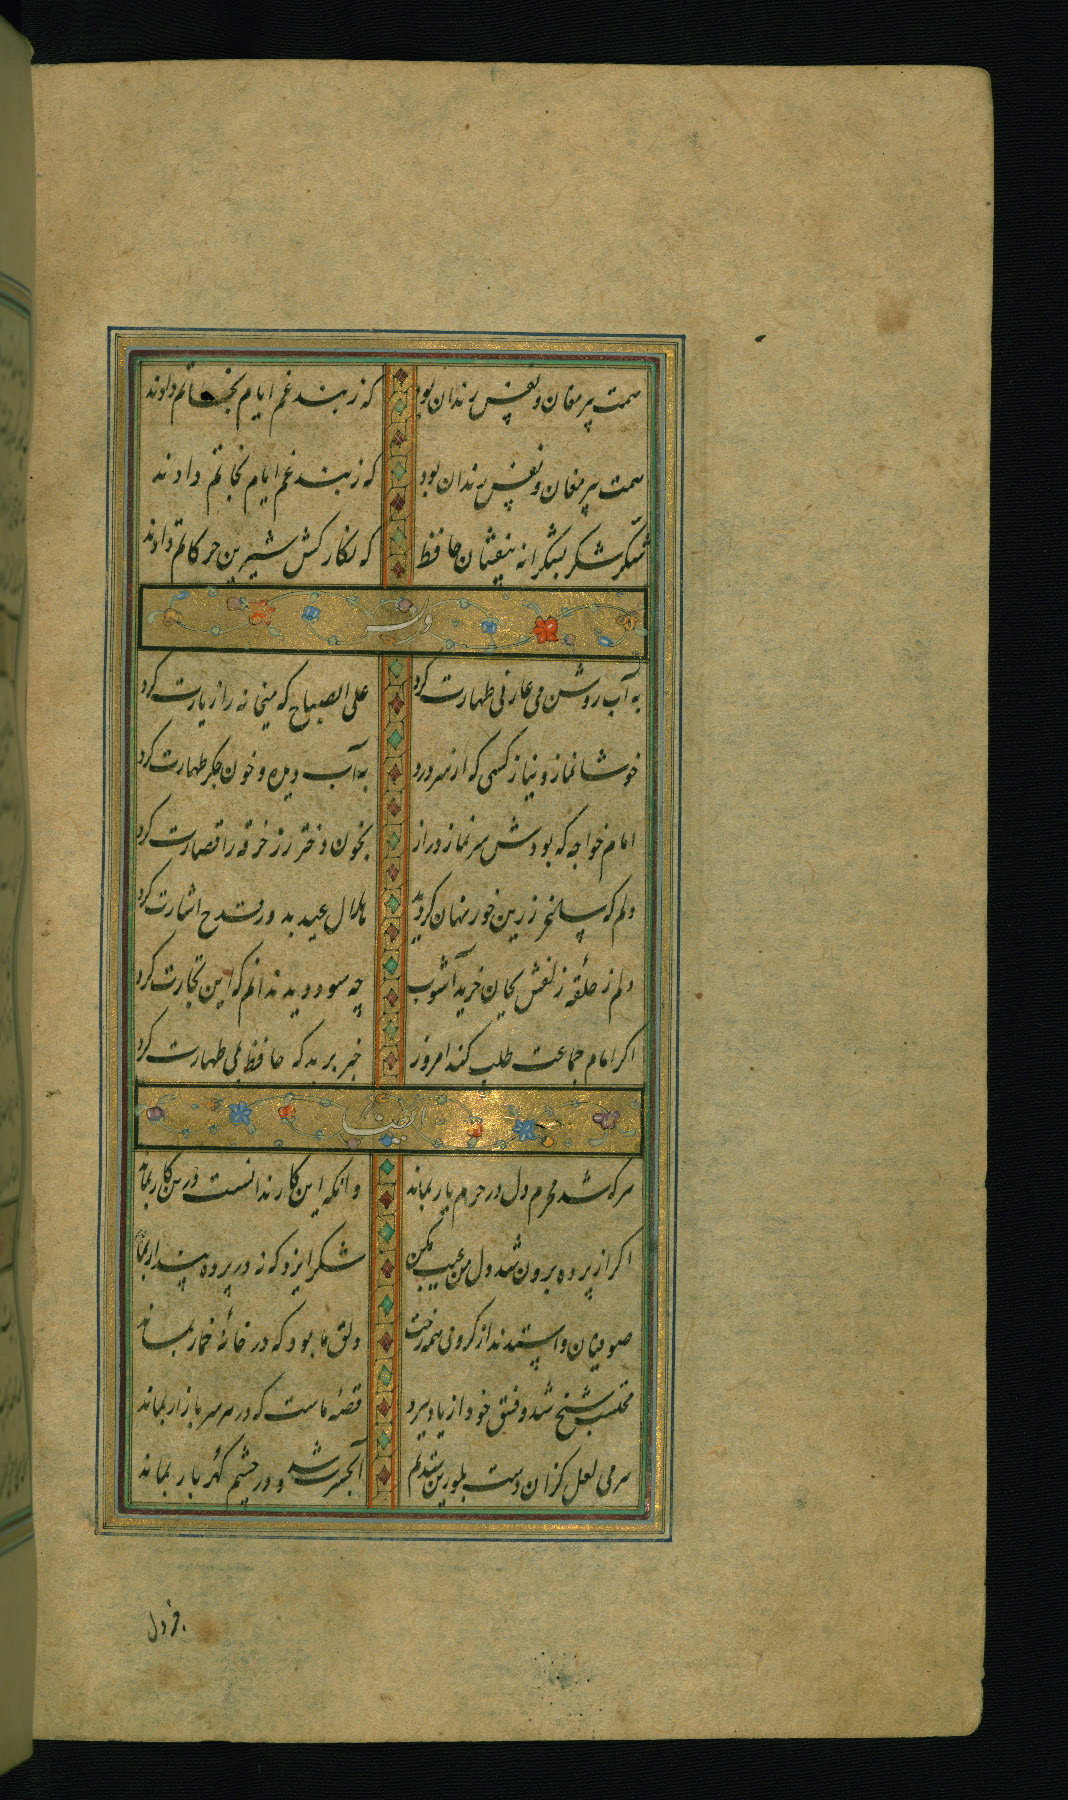 همت پیر مغان و نفس رندان بود که ز بند غم ایام نجاتم دادند
همت پیر مغان و نفس رندان بود که ز بند غم ایام نجاتم دادند
شکر شکر بشکرانه بیفشان حافظ که نگار کش شیرین حرکاتم دادند
وله
به آب روشن می عارفی طهارت کرد علی الصباح که میخانه را زیارت کرد
خوشا نماز و نیاز کسی که از سر درد به آب دیده و خون جگر طهارت کرد
امام خواجه که بودش سر نماز دراز بخون دختر رز خرقه را قصارت کرد
دلم که ساغر زرین خور نهان کردند هلال عید به دور قدح اشارت کرد
دلم ز حلقه زلفش بجان خرید آشوب چه سود دید ندانم که این تجارت کرد
اگر امام جماعت طلب کند امروز خبر برید که حافظ بمی طهارت کرد
ایضا
هر که شد محرم دل در حرم یار بماند وانکه این کار ندانست درین کار بماند
اگر از پرده برون شد دل من عیب مکن شکر ایزد که نه در پرده پندار بماند
صوفیان واستدند از گرو می همه رخت دلق ما بود که در خانهٔ خمار بماند
محتسب شیخ شد و فسق خود از یاد ببرد قصهٔ ماست که در هر سر بازار بماند
هر می لعل کزان دست بلورین ستدیم آب حسرت شد و در چشم گهر بار بماند
جز دل